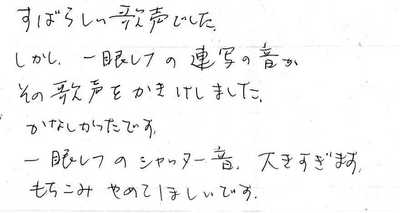 すばらしい歌声でした.
しかし、一眼レフの連写の音が
その歌声をかきけしました.
かなしかったです.
一眼レフのシャッター音、大きすぎます.
もちこみやめてほしいです.